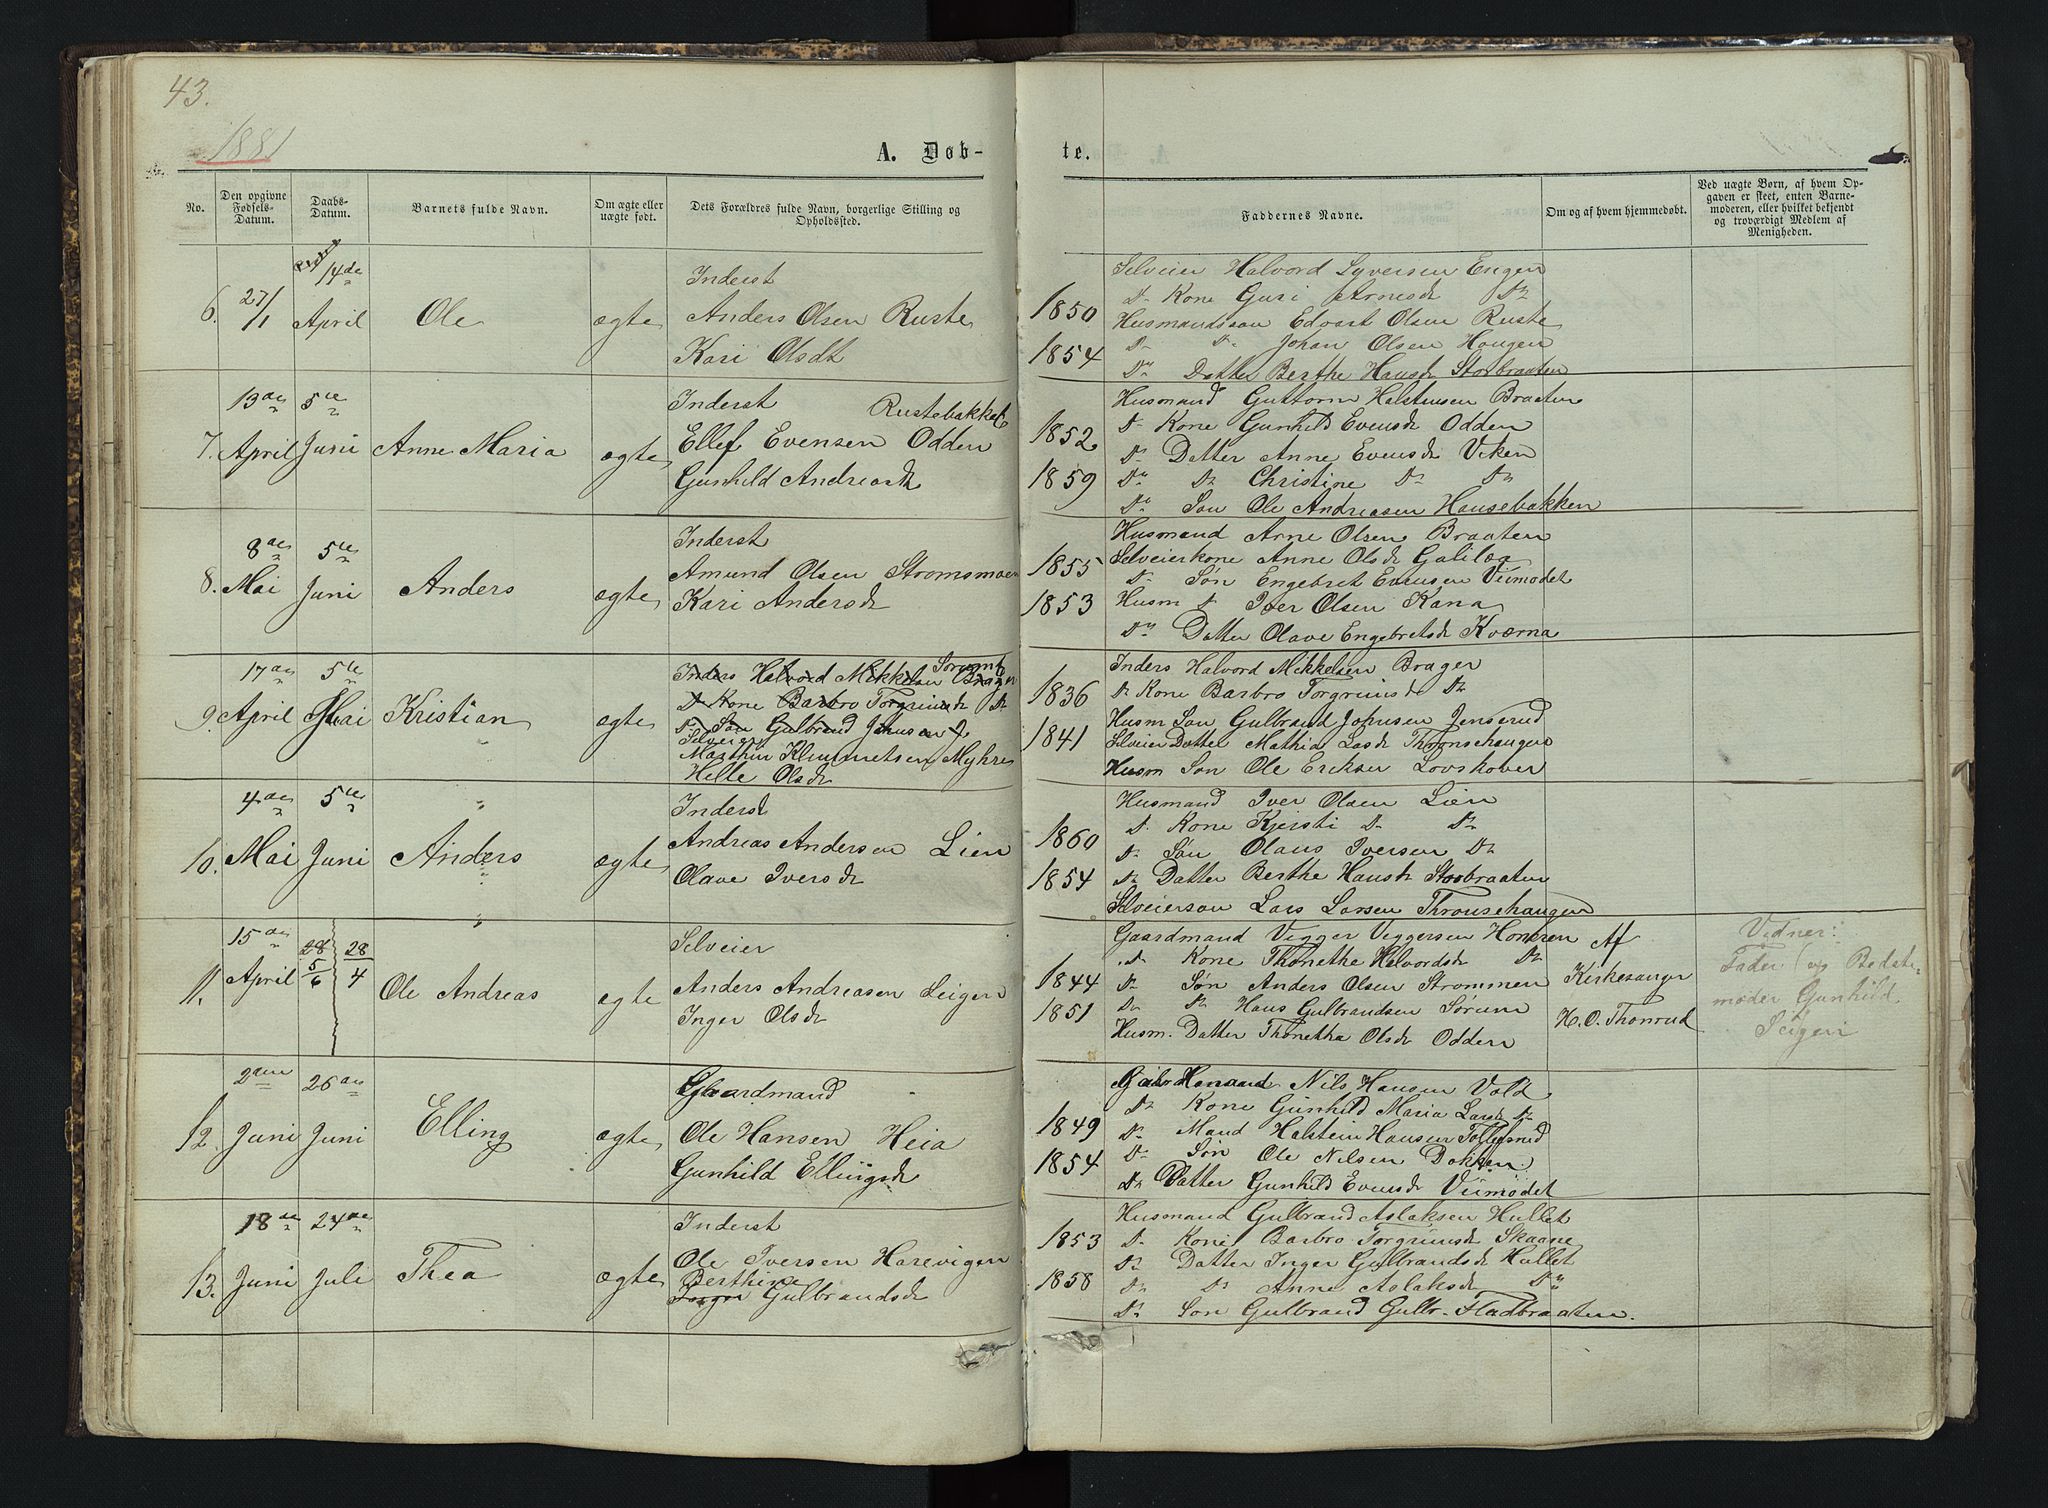 43.
1881
A. Døb-
te.
No.
Den opgivne Fødsels-Datum.
Daabs-Datum.
Barnets fulde Navn.
Om ægte eller uægte født.
Dets Forældres fulde Navn, borgerlige Stilling og Opholdssted.
Faddernes Navne.
Om og af hvem hjemmedøbt.
Ved uægte Børn, af hvem Op-
gaven er skeet, enten Barne-
moderen, eller hvilket bekjendt
og troværdigt Medlem af
Menigheden.
6. 27/1
14de April
Ole
ægte
Inderst
Anders Olsen Ruste
Kari Olsdt
1850
1854
Selveier Halvord Syversen Engen
Do Kone Guri Arnesdt Do
Husmandssøn Edvart Olsen Ruste
Do Do Johan Olsen Haugen
Do Datter Berthe Hansdt Storbraaten
7. 13de April
5te Juni
Anne Maria
ægte
Inderst Rustebakken
Ellef Evensen Odden
Gunhild Andreasdt
1852
1859
Husmand Guttorm Halstensen Braaten
Do Kone Gunhild Evensdt Odden
Do Datter Anne Evensdt Viken
Do Do Christine Do Do
Do Søn Ole Andreasen Hausebakken
8. 8de Mai
5te Juni
Anders
ægte
Inderst
Amund Olsen Strømsmoen
Kari Andersdt
1855
1853
Husmand Arne Olsen Braaten
Selveierkone Anne Olsdt Galilæa
Do Søn Engebret Evensen Viimodet
Husm Do Iver Olsen Kana
Do Datter Olave Engebretsdt Kværna
9. 17de April
5te Mai
Kristian
ægte
Inders Halvord Mikkelsen Brager
Do Kone Barbro Torgrimsdt Do
Do Søn Gulbrand Johnsen
Selveier
Marthin Klemmetsen Myhre
Helle Olsdt
1836
1841
Inders Halvord Mikkelsen Brager
Do Kone Barbro Torgrimsdt Do
Husm Søn Gulbrand Johnsen Jenserud
Selveier Datter Mathia Lasdt Thronsehaugen
Husm Søn Ole Eriksen Lovskover
10. 4de Mai
5te Juni
Anders
ægte
Inderst
Andreas Andersen Lien
Olave Iversdt
1860
1854
Husmand Iver Olsen Lien
Do Kone Kjersti Do Do
Do Søn Olaus Iversen Do
Do Datter Berthe Hansdt Storbraaten
Selveiersøn Lars Larsen Thronsehaugen
11. 15de April
28 5/6 28/4
Ole Andreas
ægte
Selveier
Anders Andreasen Seigen
Inger Olsdt
1844
1851
Gaardmand Vegger Veggersen Honkren
Do Kone Thonethe Halvordsdt Do
Do Søn Anders Olsen Strømmen
Do Do Hans Gulbrandsen Sørum
Husm. Datter Thonetha Olsdt Odden
Af
Kirkesanger
H. O. Thonrud
Vidner:
Fader og Bedste-
moder Gunhild
Seigen
12. 2den Juni
26de Juni
Elling
ægte
Gaardmand
Ole Hansen Heia
Gunhild Ellingsdt
1849
1854
Gaardmand Nils Hansen Vold
Do Kone Gunhild Maria Larsdt Do
Do Mand Halstein Hansen Tollefsrud
Do Søn Ole Nilsen Dokken
Do Datter Gunhild Evensdt Viimodet
13. 18de Juni
24de Juli
Thea
ægte
Inderst
Ole Iversen Harevigen
Berthine
Inger Gulbrandsdt
1853
1858
Husmand Gulbrand Aslaksen Hullet
Do Kone Barbro Torgrimsdt Skaane
Do Datter Inger Gulbrandsdt Hullet
Do Do Anne Aslaksdt Do
Do Søn Gulbrand Gulbr. Fladbraaten.